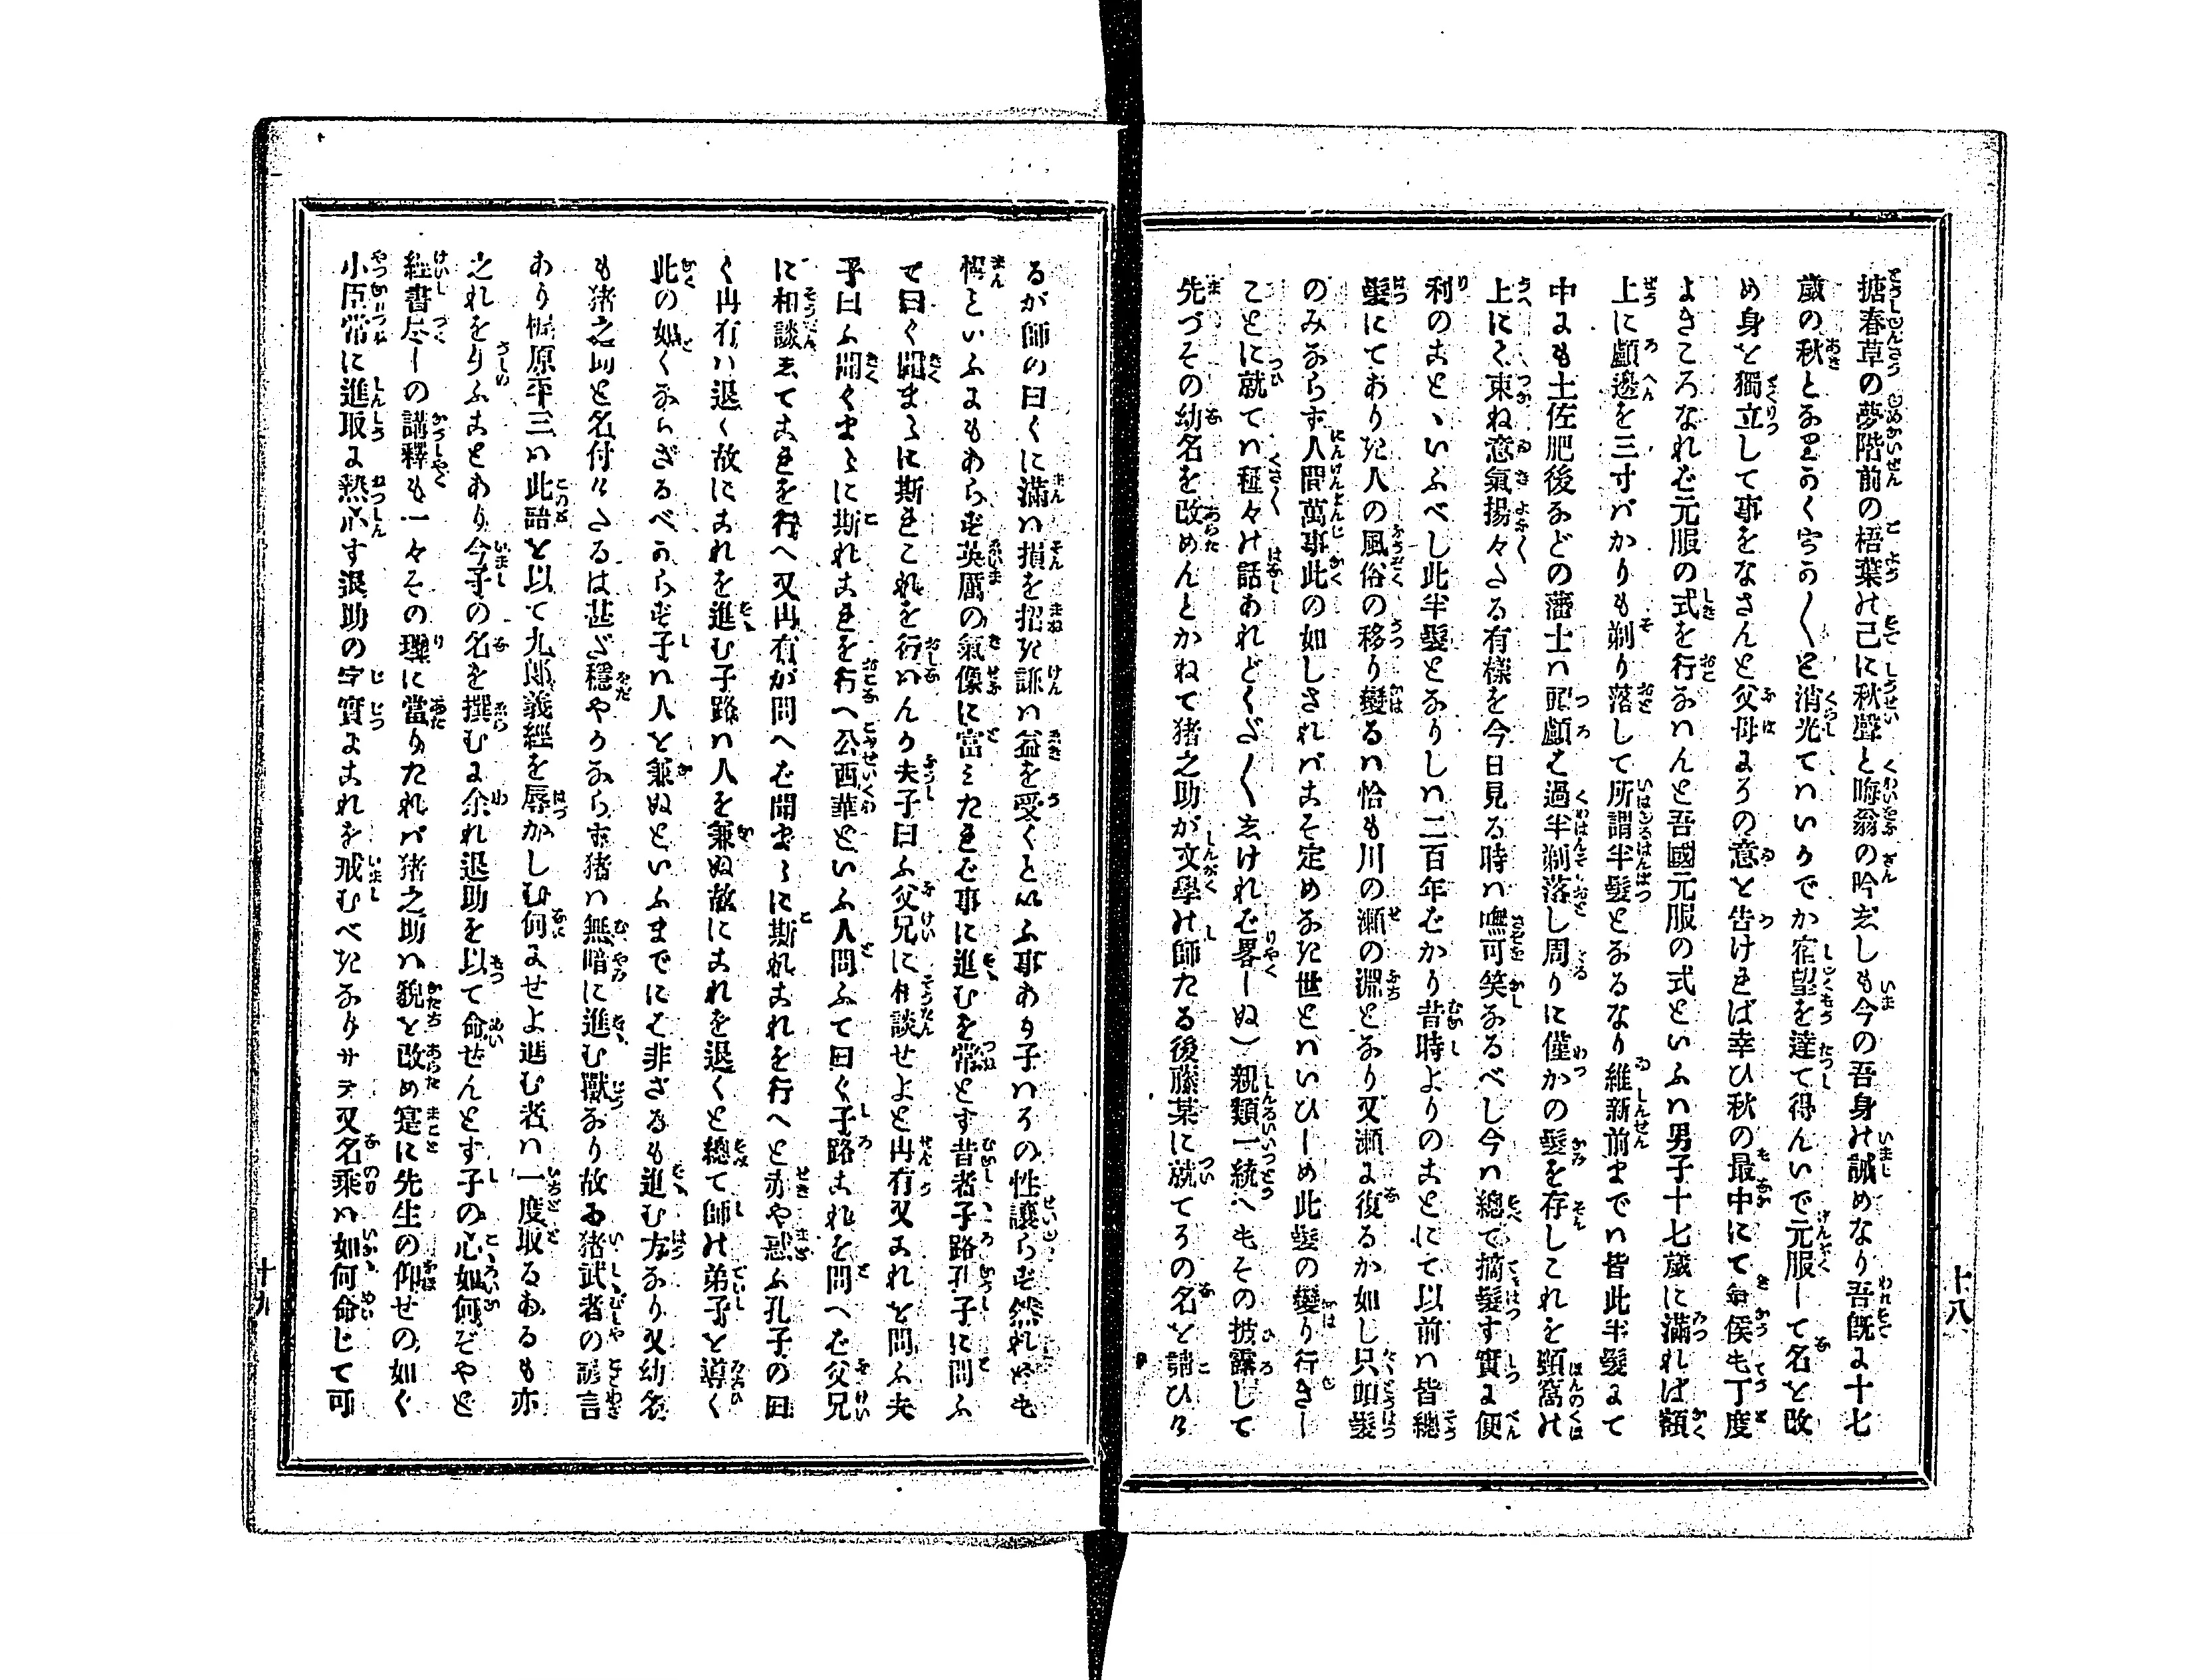 塘春草の夢階前の梧葉に己に秋聲と晦翁の吟ぜしも今の吾身に誡めなり吾既に十七
歳の秋となりのくうのく〳〵と消光てハいりでか宿望を達て得んいで元服して名を改
め身を獨立して事をなさんと父母にその意を告ければ幸ひ秋の最中にて氣候も丁度
よきころなれど元服の式を行なハんと吾國元服の式といふハ男子十七歳に滿れば額
上に顱邊を三寸バかりも剃り落して所謂半髮となるなり維新前までハ皆此半髮にて
中にも土佐肥後などの藩士ハ頭顱を過半剃落し周りに僅かの髮を存しこれを頸窩に
上にく束ね意氣揚々たる有樣を今日見る時ハ嘸可笑なるべし今ハ總て摘髮す實に便
利のことゝいふべし此半髮となりしハ二百年ばかり昔時よりのことにて以前ハ皆總
髮にてありた人の風俗の移り變るハ恰も川の瀬の淵となり又瀬に復るか如し只頭髮
のみならず人間萬事此の如しされバこそ定めなき世とハいひしめ此髮の變り行きし
ことに就てハ種々に話あれどくだ〳〵しければ畧しぬ）親類一統へもその披露して
先づその幼名を改めんとかねて猪之助が文學に師たる後藤某に就てその名を請ひ
十八
るが師の曰くに滿ハ損を招き謙ハ益を受くといふ事あり子ハその性讓らず然れども
慢といふにもあらず英厲の氣像に富みたれば事に進むを常とす昔者子路孔子に問ふ
て曰く聞まゝに斯れこれを行ハんか夫子曰ふ父兄に相談せよと冉有又これを問ふ夫
子曰ふ聞くまゝに斯れこれを行へ公西華といふ人問ふて曰く子路これを問へば父兄
に相談してこれを行へ又冉有が問へば聞まゝに斯れこれを行へと赤や惑ふ孔子の曰
く冉有ハ退く故にこれを進む子路ハ人を兼ぬ故にこれを退くと總て師に弟子を導く
此の如くならざるべからず子ハ人を兼ぬといふまでにも非ざるも進む方なり又幼名
も猪之助と名付けたるは甚だ穩やかならず猪ハ無暗に進む獸なり故に猪武者の諺言
あり梶原平三ハ此語を以て九郎義經を辱かしむ何にせよ進む者ハ一度取るあるも亦
之れをりふことあり今子の名を撰むに余れ退助を以て命ぜんとす子の心如何ぞやと
經書尽しの講釋も一々その理に當りたれバ猪之助ハ貌を改め寔に先生の仰せの如く
小臣常に進取に熱心す退助の字實にこれを戒むべきなりサテ又名乘ハ如何命じて可
十九